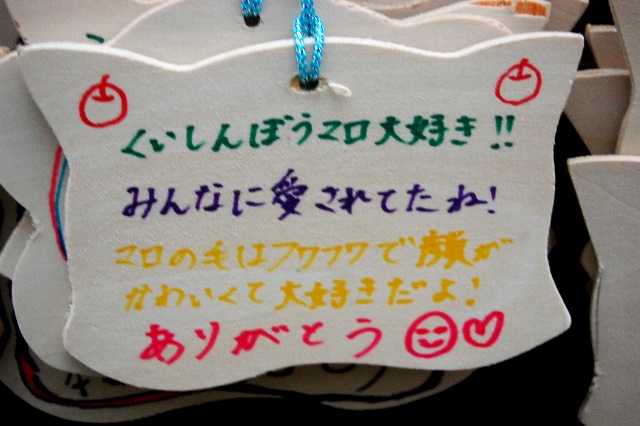 くいしんぼうマロ大好き!!
みんなに愛されてたね!
マロの毛はフワフワで顔が
かわいくて大好きだよ!
ありがとう